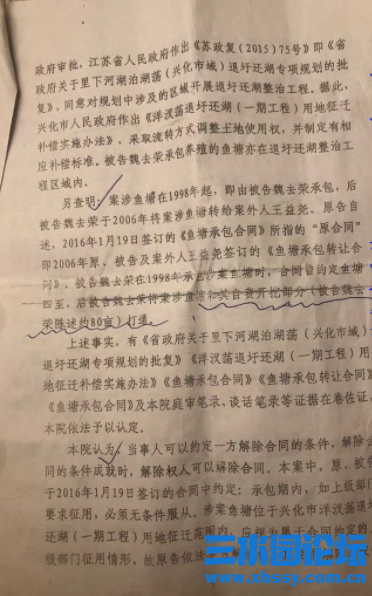 政府审批，江苏省人民政府作出《苏政复（2015）75号》即《省
政府关于里下河湖泊湖荡（兴化市域）退圩还湖专项规划的批
复》，同意对规划中涉及的区域开展退圩还湖整治工程。据此，
兴化市人民政府作出《洋汊荡退圩还湖（一期工程）用地征迁
补偿实施办法》，采取流转方式调整土地使用权，并制定有相
应补偿标准。被告魏去荣承包养殖的鱼塘亦在退圩还湖整治工
程区域内。
另查明，案涉鱼塘在1998年起，即由被告魏去荣承包，后
被告魏去荣于2006年将案涉鱼塘转给案外人王益尧。原告自
述，2016年1月19日签订的《鱼塘承包合同》所指的“原合同”
即2006年原、被告及案外人王益尧签订的《鱼塘承包转让合
同》。被告魏去荣在1998年承包涉案鱼塘时，合同曾约定鱼塘
四至，后被告魏去荣将案涉鱼塘和其自费开挖部分（被告魏去
荣陈述约80亩）打通。
上述事实，有《省政府关于里下河湖泊湖荡（兴化市域）
退圩还湖专项规划的批复》《洋汊荡退圩还湖（一期工程）用
地征迁补偿实施办法》《鱼塘承包合同》《鱼塘承包转让合同》
《鱼塘承包合同》及本院庭审笔录、谈话笔录等证据在卷佐证，
本院依法予以认定。
本院认为，当事人可以约定一方解除合同的条件，解除
同的条件成就时，解除权人可以解除合同。本案中，原、被
于2016年1月19日签订的合同中约定：承包期内，如上级部
要求征用，必须无条件服从。涉案鱼塘位于兴化市洋汊荡退
还湖（一期工程）用地征迁范围内，应视为属于合同约定的
级部门征用情形，故原告依法
三水园论坛
www.xhssy.com.cn